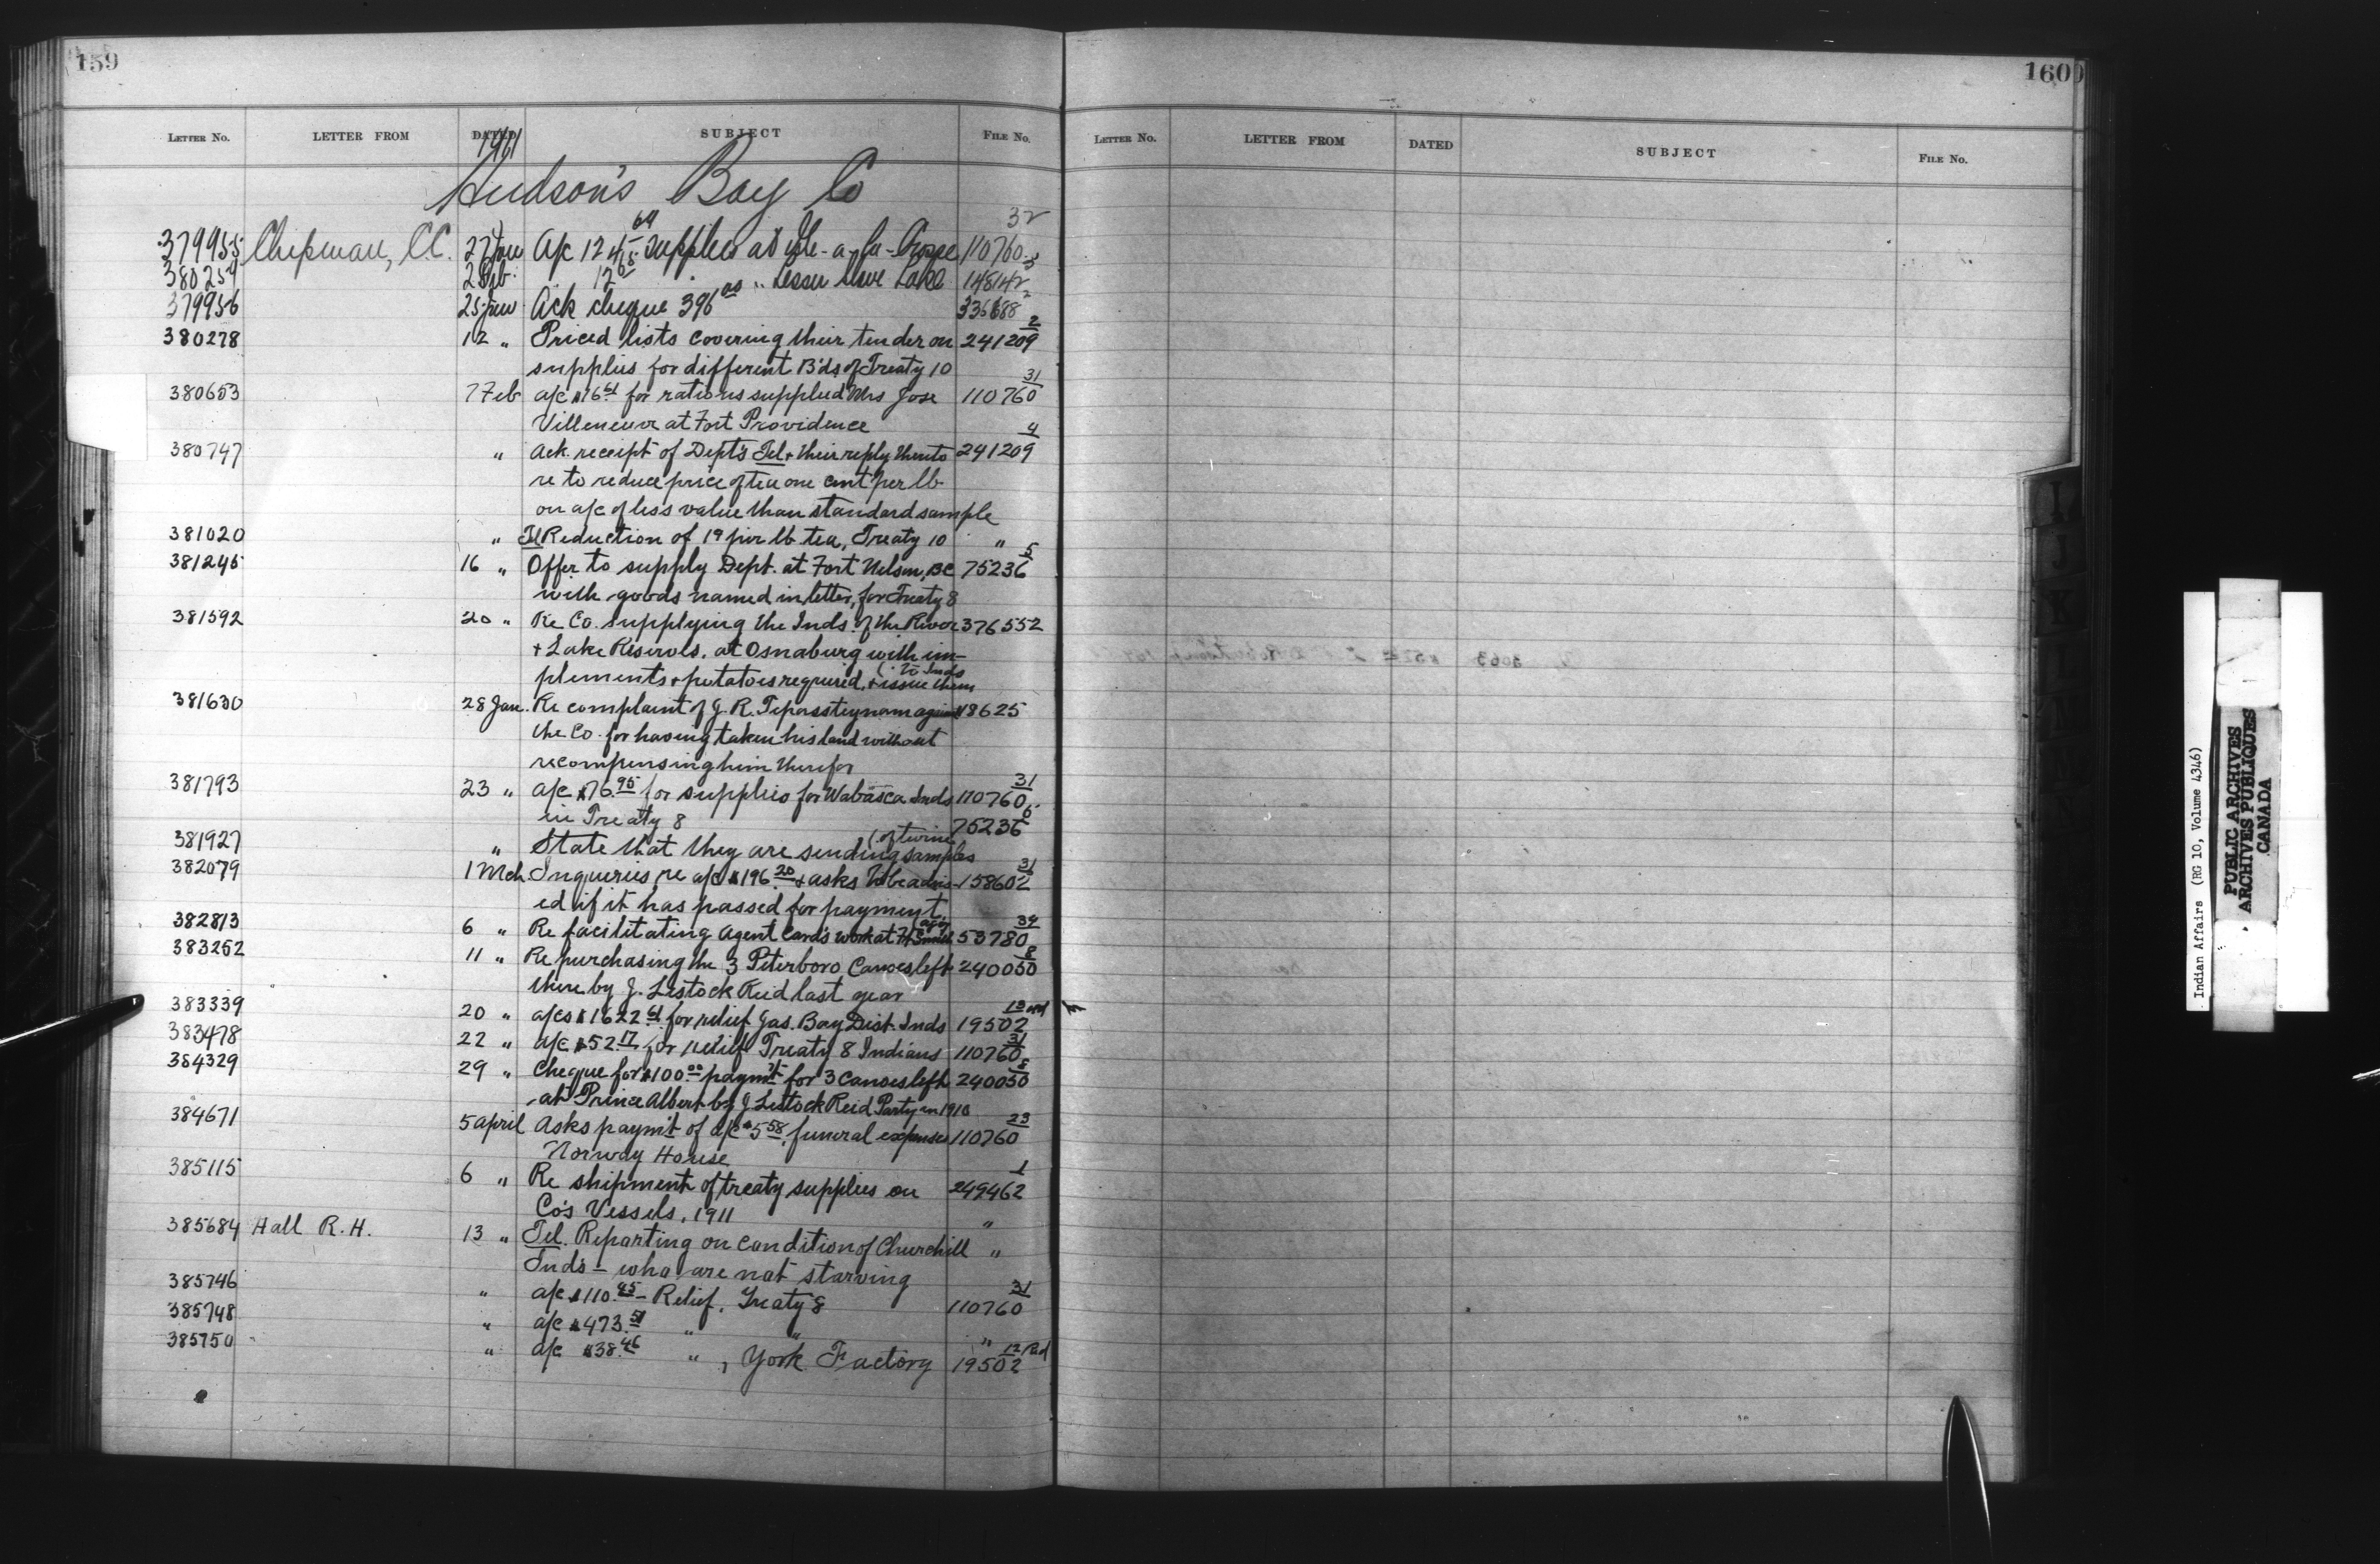 159
LETTER No. LETTER FROM DATED SUBJECT FILE No.
1911
Hudson's Bay Co
32
379955 Chipman, C.C. 27 Jan A/c 124.64 supplies at Ile-a-la-Crosse 110760
380254 2 Feb. " Lesser Slave Lake 148142
379956 25 Jan Ack cheque 396.00 336688
2
380278 12 " Priced lists covering their tender on 241209
supplies for different B'ds of Treaty 10
31
380653 7 Feb a/c $16.61 for rations supplied Mrs Jose 110760
Villeneuve at Fort Providence
4
380747 " Ack. receipt of Dept's Tel + their reply thereto 241209
re to reduce price of tea one cent per lb
on a/c of less value than standard sample
381020 " Tel Reduction of 1¢ per lb tea, Treaty 10 "
5
381245 16 " Offer to supply Dept. at Fort Nelson, BC 75236
with goods named in letter, for Treaty 8
381592 20 " Re Co. supplying the Inds. of the River 376552
+ Lake Reserves. at Osnaburg with im-
(to Inds
plements + potatoes required, + issue them
381630 28 Jan. Re complaint of J. R. against 18625
the Co. for having taken his land without
recompensing him therefor
31
381793 23 " a/c $76.95 for supplies for Wabasca Inds 110760
in Treaty 8
6
75236
(of twine
381927 " State that they are sending samples
31
382079 1 Mch. Inquiries re a/c $196.20 + asks to be advis- 158602
ed if it has passed for payment.
34
382813 6 " Re facilitating Agent Card's work at Ft Smith 53780
8
383252 11 " Re purchasing the 3 Peterboro Canoes left 240050
there by J. Lestock Reid last year
13
383339 20 " a/cs $1622.61 for relief Jas. Bay Dist. Inds 19502
31
383478 22 " a/c $52.17 for relief Treaty 8 Indians 110760
8
384329 29 " Cheque for $100.00 paym't for 3 Canoes left 240050
at Prince Albert by J Lestock Reid Party in 1910
23
384671 5 April Asks paym't of a/c $5.58, funeral expenses 110760
Norway House
1
385115 6 " Re shipment of treaty supplies on 249462
Co's Vessels, 1911 "
385684 Hall R.H. 13 " Tel. Reporting on condition of Churchill "
Ind's - who are not starving
31
385746 " a/c $110.45 - Relief, Treaty 8 110760
385748 " a/c $473.51 " " "
12 Red
385750 " a/c $38.46 " , York Factory 19502
160
LETTER No. LETTER FROM DATED SUBJECT FILE No.
I
J
K
L
M
Indian Affairs (RG 10, Volume 4346)
PUBLIC ARCHIVES
ARCHIVES PUBLIQUES
CANADA